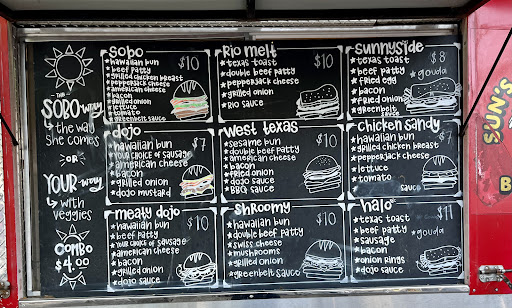 THE
SOBO way
↳ the way
she comes
- OR -
YOUR-way
↳ with
veggies
COMBO
$4.00
SOBO
$10
*hawaiian bun
*beef patty
*grilled chicken breast
*pepperjack cheese
*american cheese
*bacon
*grilled onion
*lettuce
*tomato
*greenbelt sauce
Rio melt
$10
*texas toast
*double beef patty
*pepperjack cheese
*bacon
*grilled onion
*Rio sauce
sunnyside
$8
*texas toast
*beef patty
*gouda
*fried egg
*bacon
*fried onion
*greenbelt
sauce
dojo
$7
hawaiian bun
*YOUR CHOICE OF sausage
*american cheese
*bacon
*grilled onion
*dojo mustard
west texas
$10
*sesame bun
*double beef patty
*american cheese
*bacon
*fried onion
*dojo sauce
*BBQ sauce
chicken sandy
$10
*hawaiian bun
*grilled chicken breast
*pepperjack cheese
*bacon
*lettuce
*tomato
sauce
mealy dojo
$10
*hawaiian bun
*beef patty
*YOUR CHOICE OF sausage
*american cheese
*bacon
*grilled onion
*dojo sauce
shroomy
$10
*hawaiian bun
*double beef patty
*swiss cheese
*mushrooms
*grilled onion
*greenbelt sauce
halo
$11
*texas toast
*beef patty
*gouda
*sausage
*bacon
*onion rings
*dojo sauce
SUN'S
B